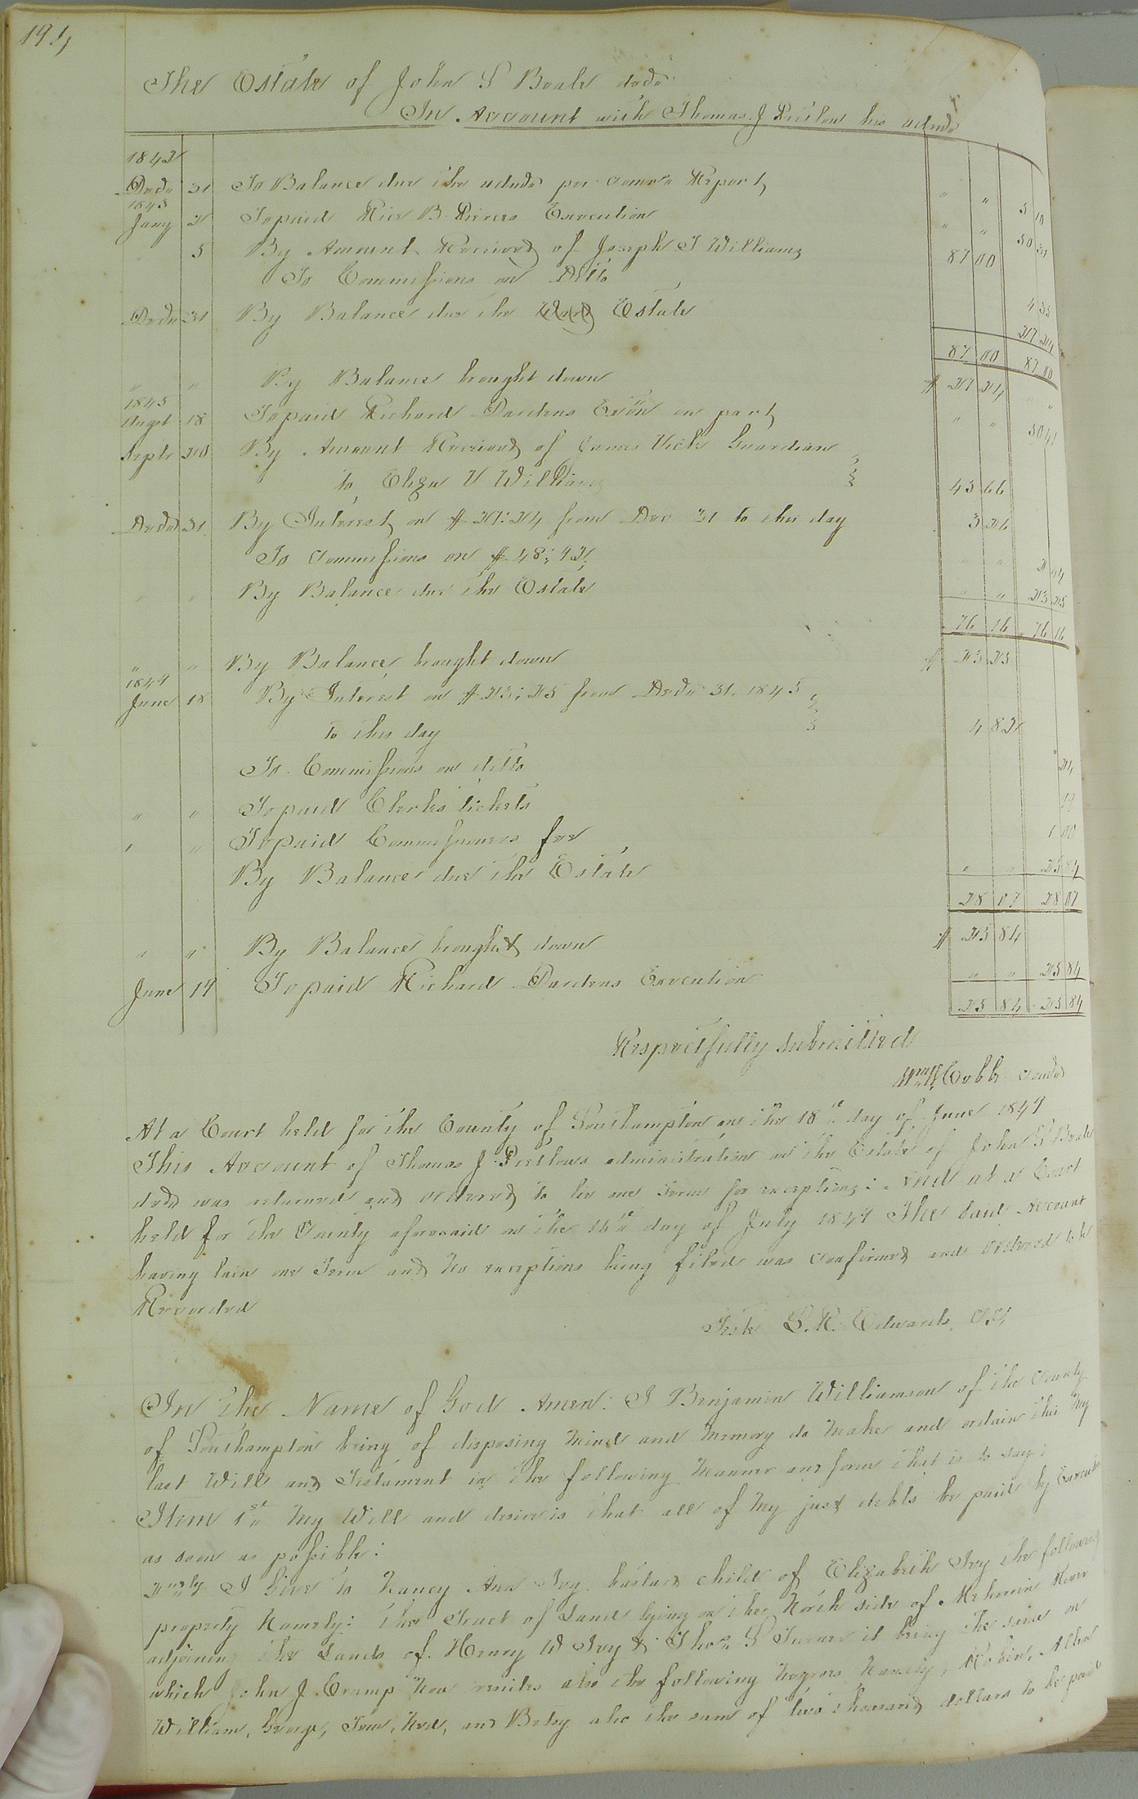 194
The Estate of John S Beale decd
In Account with Thomas J Pretlow his admr
1842
Decr 31 To Balance due the admr per Comrs Report " " 5 10
1843
Jany 2 To paid Execution " " 50 31
5 By Amount Received of Joseph T Williams 87 00
To Commissions on Ditto 4 35
Decr 31 By Balance due the Estate 27 24
87 00 87 00
" " By Balance brought down $ 27 24 "
1845
Augst 18 To paid Richard Dardens Exōn in part " " 50 47
Septr 20 By Amount Received of James Vick Guardian
to Eliza V Williams 45 66
Decr 31 By Interest on $27:24 from Dec 31 to this day 3 26
To Commissions on $48:92 " " 2 44
" " By Balance due the Estate " " 23 25
76 16 76 16
" " By Balance brought down $ 23 25
1849
June 18 By Interest on $23:25 from Decr 31. 1845
to this day 4 82
To Commissions on ditto " 24
" " To paid Clerks tickets 99
" " To paid Commissioners fee 1 00
By Balance due the Estate " " 25 84
28 07 28 07
" " By Balance brought down $ 25 84
June 19 To paid Richard Dardens Execution " " 25 84
25 84 25 84
Respectfully submitted
Cobb Comr
At a Court held for the County of Southampton on the 18th day of June 1849
This Account of Thomas J Pretlows administration on the Estate of John S Beale
decd was returned and ordered to lie one Term for exceptions: And at a Court
held for the County aforesaid on the 16th day of July 1849 The Said Account
having lain one Term and no exceptions being filed was Confirmed and Ordered to be
Recorded
Teste L. R. Edwards,
In The Name of God Amen: I Benjamin Williamson of the County
of Southampton being of disposing Mind and Memory do Make and ordain this My
last Will and Testament in the following Manner and form that is to say:
Item 1st My Will and desire is that all of My just debts be paid by Executor
as soon as possible:
2ndly I Give to Nancy Ann Ivy bastard child of Elizabeth Ivy the following
property Namely: the Tract of Land lying on the North side of Meherrin River
adjoining the Lands of Henry W Ivy & Thos S Turner it being the same on
which John J. Crump Now resides also the following Negroes Namely,
William, George, Tom, Ned, and Betsy also the sum of two thousand dollars to be paid